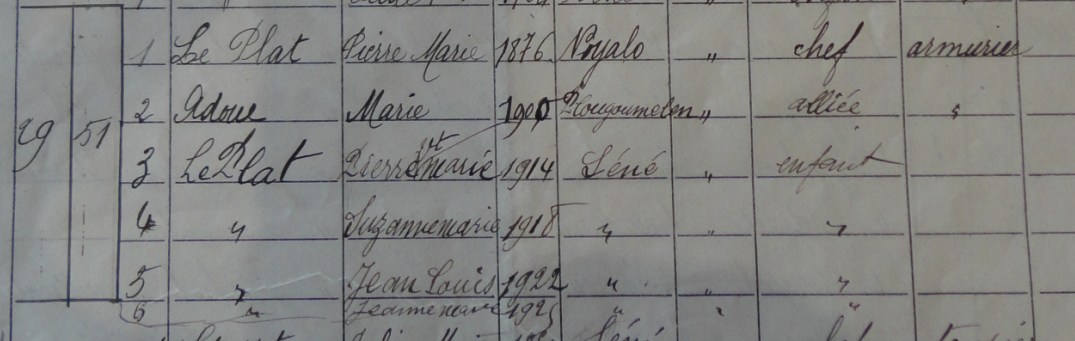 29 51
1 Le Plat Pierre Marie 1876 Noyalo " chef armurier
2 Adoue Marie Plougoumelen " alliée "
3 Le Plat Pierre Marie 1914 Séné " enfant
4 " Suzanne marie 1918 " " "
5 " Jean Louis 1922 " " "
6 " Jeanne marie " " "
Séné